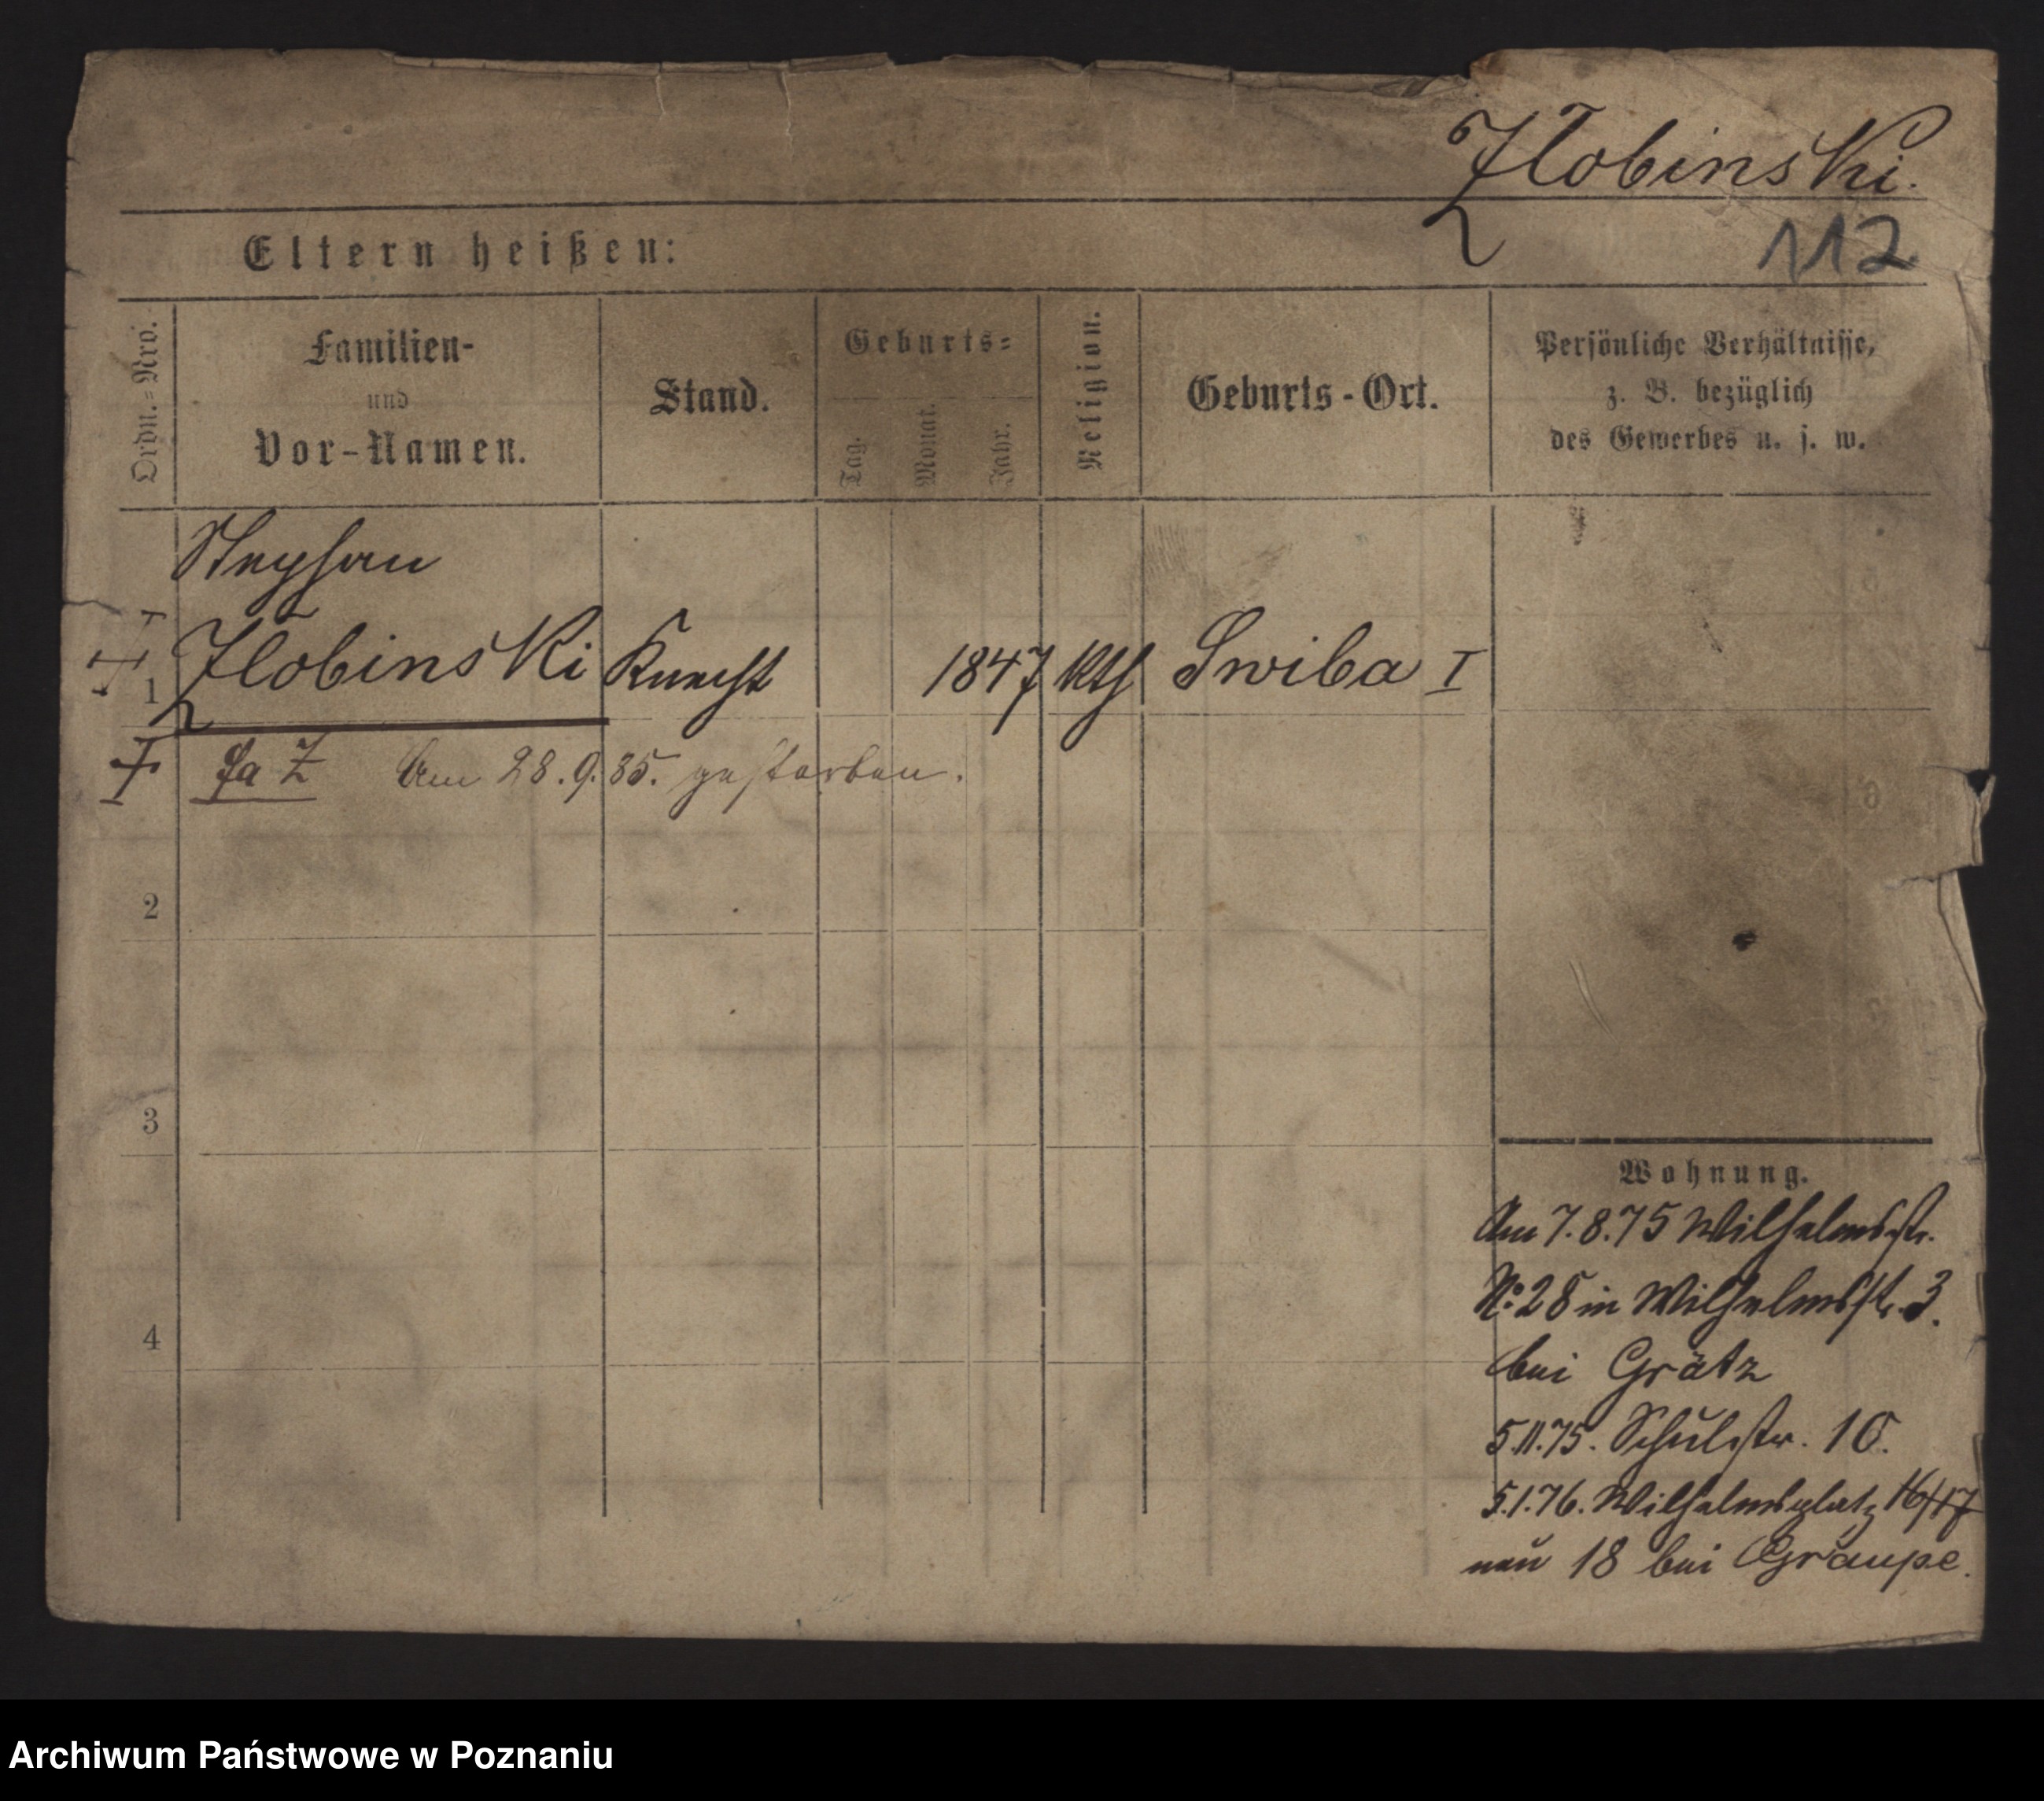 Zlobinski.
112
Eltern heißen:
Ordn.-Nro.
Familien-
und
Vor-Namen.
Stand.
Geburts-
Tag.
Monat.
Jahr.
Religion.
Geburts-Ort.
Persönliche Verhältnisse,
z. B. bezüglich
des Gewerbes u. s. w.
Stephan
1 Zlobinski Knecht 1847 kth Swiba I
Am 28.9.85. gestorben.
2
3
4
Wohnung.
Am 7.8.75 Wilhelmsstr.
No 28 in Wilhelmsstr. 3.
bei Grätz
5.11.75. Schulstr. 10.
5.1.76. Wilhelmsplatz 16/17
neu 18 bei Graupe.
Archiwum Państwowe w Poznaniu